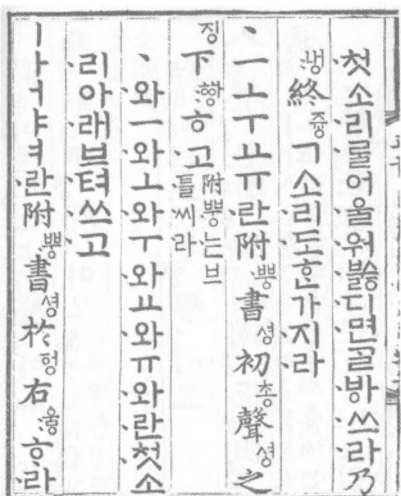 첫소리ᄅᆞᆯ어울워ᄡᅮᇙ디면ᄀᆞᆯᄫᅡ쓰라乃
냉終즁ㄱ소리도ᄒᆞᆫ가지라
ㆍㅡㅗㅜㅛㅠ란附뿡書셩初총聲셩之
징下ᅘᅡᆼᄒᆞ고附뿡는브틀씨라
ㆍ와ㅡ와ㅗ와ㅜ와ㅛ와ㅠ와란첫소
리아래브텨쓰고
ㅣㅏㅓㅑㅕ란附뿡書셩於ᅙᅥᆼ右ᅌᅮᇢᄒᆞ라